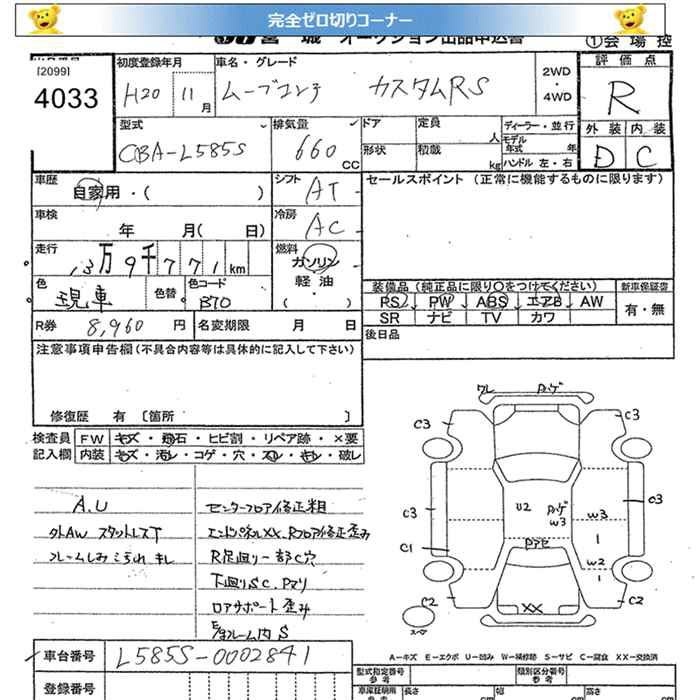 完全ゼロ切りコーナー
宮城 オークション出品申込書 ①会場控
[2099]
4033
初度登録年月 車名・グレード 2WD ・ 4WD 評価点
H20 11月 ムーブコンテ カスタムRS R
型式 排気量 ドア 定員 人 ディーラー・並行 外装 内装
CBA-L585S 660 CC 形状 積載 kg モデル年式 年 ハンドル 左・右 D C
車歴 シフト セールスポイント (正常に機能するものに限ります)
自家用・( ) AT
車検 冷房
年 月( 日) AC
走行 燃料
13万9千771km ガソリン
軽油
( )
色 色替 色コード 装備品(純正品に限り○をつけてください) 新車保証書
現車 B70 PS PW ABS エアB AW 有・無
SR ナビ TV カワ
R券 8,960円 名変期限 月 日 後日品
注意事項申告欄(不具合内容等は具体的に記入して下さい)
修復歴 有 [箇所 ]
検査員 FW キズ・飛石・ヒビ割・リペア跡・×要
記入欄 内装 キズ・汚レ・コゲ・穴・スレ・キレ・破レ
ワレ
C3 C3
C3 C3
C1
C2 C2
U2 W3 W3
W2
XX
スペア
A.U センターフロア修正粗
外AW スタットレスT エンドパネルXX、Rフロア修正歪み
フレームしみ こすれ キレ R足廻り一部C穴
下廻りSC、Pマリ
ロアサポート歪み
S
A=キズ E=エクボ U=凹み W=補修跡 S=サビ C=腐食 XX=交換済
車台番号 L585S-0002841
型式指定番号 参考 類別区分番号 参考
登録番号
車庫証明用 参考 長さ 幅 高さ